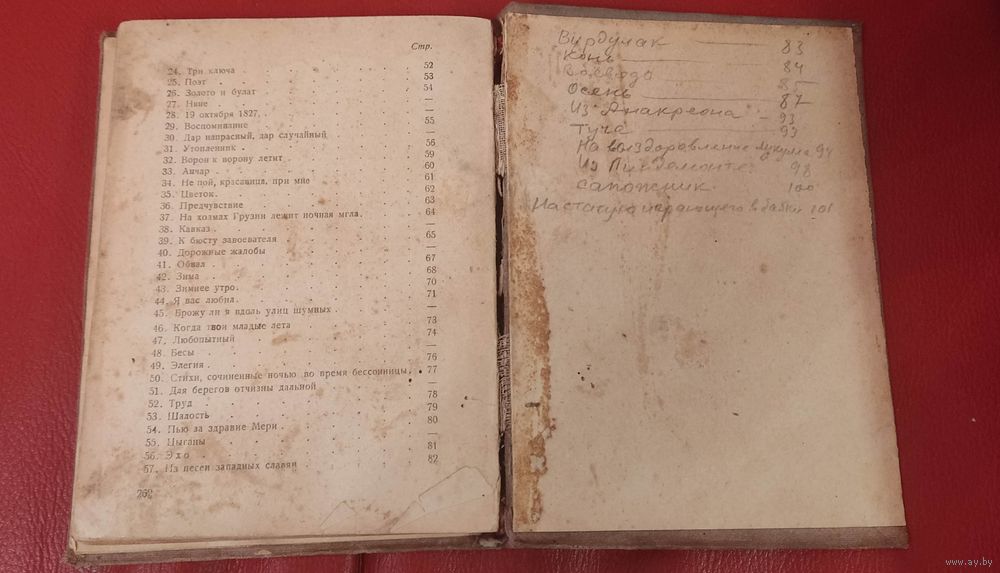 Стр.
24. Три ключа 52
25. Поэт 53
26. Золото и булат 54
27. Няне —
28. 19 октября 1827. —
29. Воспоминание 55
30. Дар напрасный, дар случайный —
31. Утопленник 56
32. Ворон к ворону летит 59
33. Анчар 60
34. Не пой, красавица, при мне 61
35. Цветок. 62
36. Предчувствие 63
37. На холмах Грузии лежит ночная мгла. 64
38. Кавказ —
39. К бюсту завоевателя 65
40. Дорожные жалобы —
41. Обвал 67
42. Зима 68
43. Зимнее утро. 70
44. Я вас любил. 71
45. Брожу ли я вдоль улиц шумных —
46. Когда твои младые лета 73
47. Любопытный 74
48. Бесы —
49. Элегия 76
50. Стихи, сочиненные ночью во время бессонницы 77
51. Для берегов отчизны дальной —
52. Труд 78
53. Шалость 79
54. Пью за здравие Мери 80
55. Цыганы —
56. Эхо 81
57. Из песен западных славян 82
262
Вурдулак 83
Конь 84
Воевода
Осень 87
Из Анакреона — 93
Туча 93
На выздоровление Лукулла 94
Из Пиндемонте 98
Сапожник 100
На статую играющего в бабки 101
www.ay.by